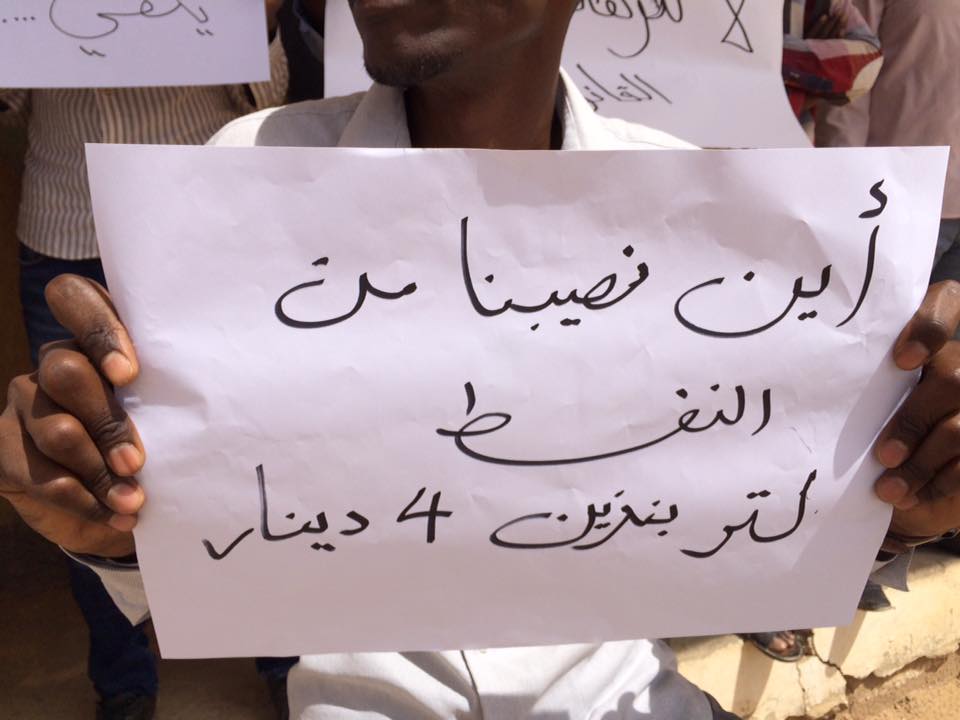 يكفي....
لا
أين نصيبنا من
النفط
لتر بنزين 4 دينار